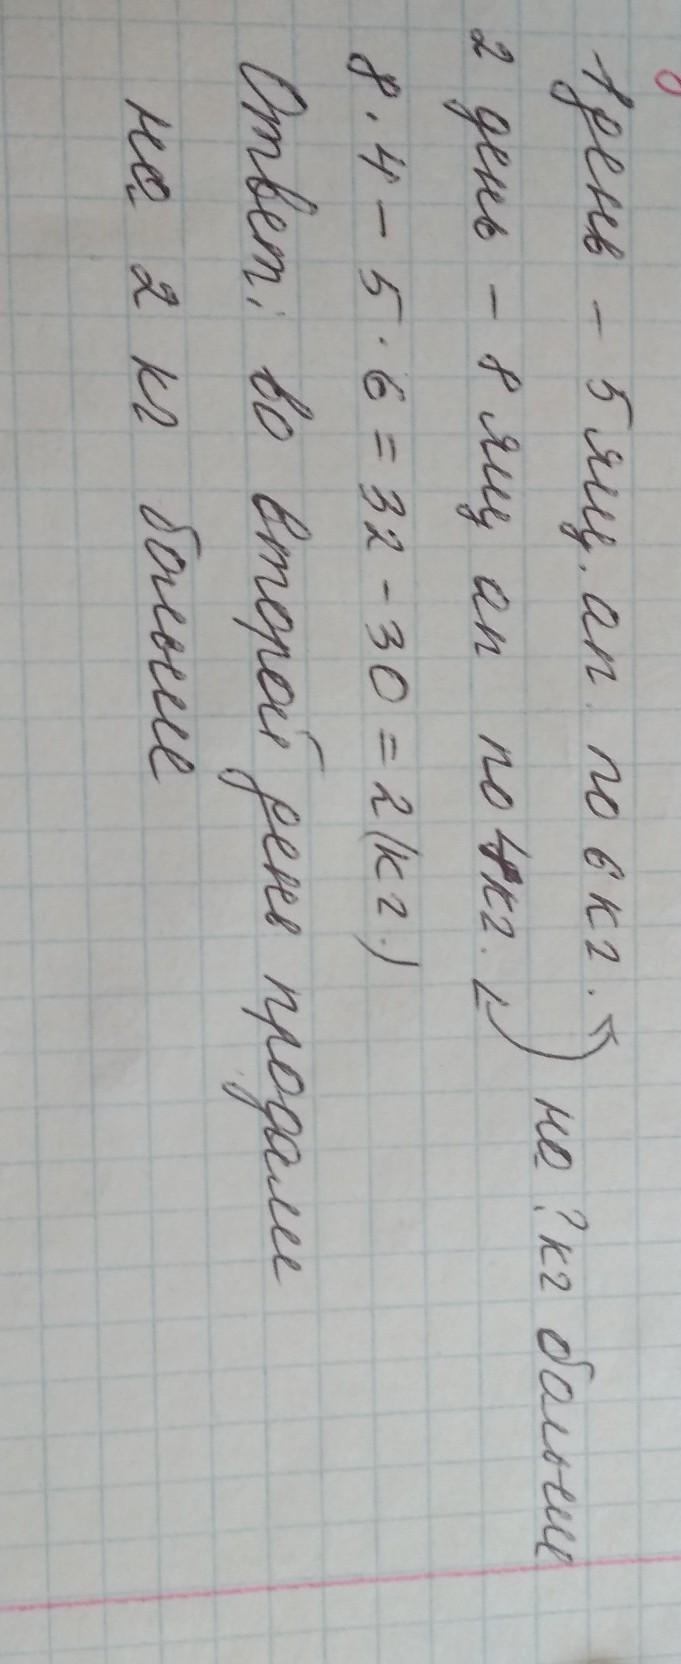 1 день - 5 ящ. ап. по 6 кг.
на ? кг больше
2 день - 8 ящ ап по 4 кг.
8 · 4 - 5 · 6 = 32 - 30 = 2 (кг.)
Ответ: во второй день продали
на 2 кг больше